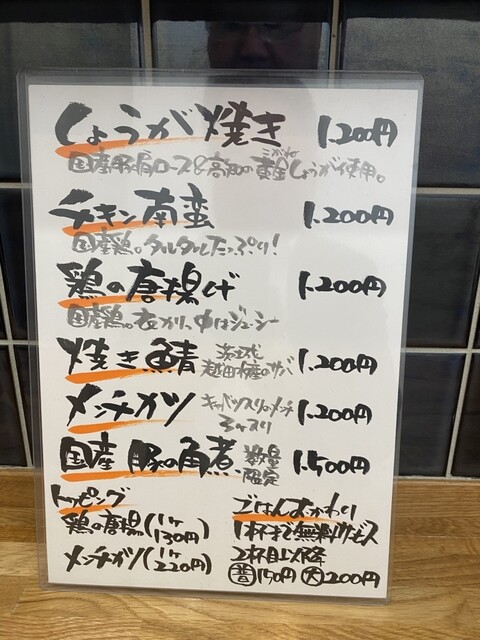 しょうが焼き 1.200円
国産豚肩ロース&高知の黄金しょうが使用。
こがね
チキン南蛮 1.200円
国産鶏。タルタルたっぷり!
鶏の唐揚げ 1.200円
国産鶏。衣カリッ、中はジューシー
焼き鯖 茨城 1.200円
メンチカツ キャベツ入りのメンチ 1.200円
3ヶ入り
国産 豚の角煮 数量限定 1.500円
トッピング
鶏の唐揚(1ヶ130円)
メンチカツ(1ヶ220円)
ごはんおかわり
1杯まで無料サービス
2杯目以降
普150円 大200円